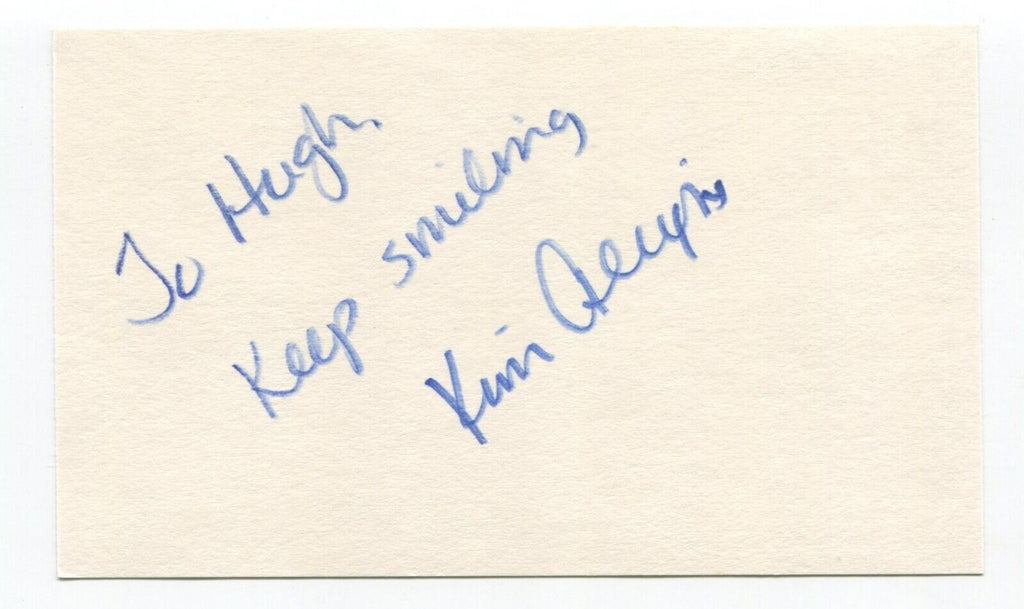 To Hugh.
Keep smiling
Kim